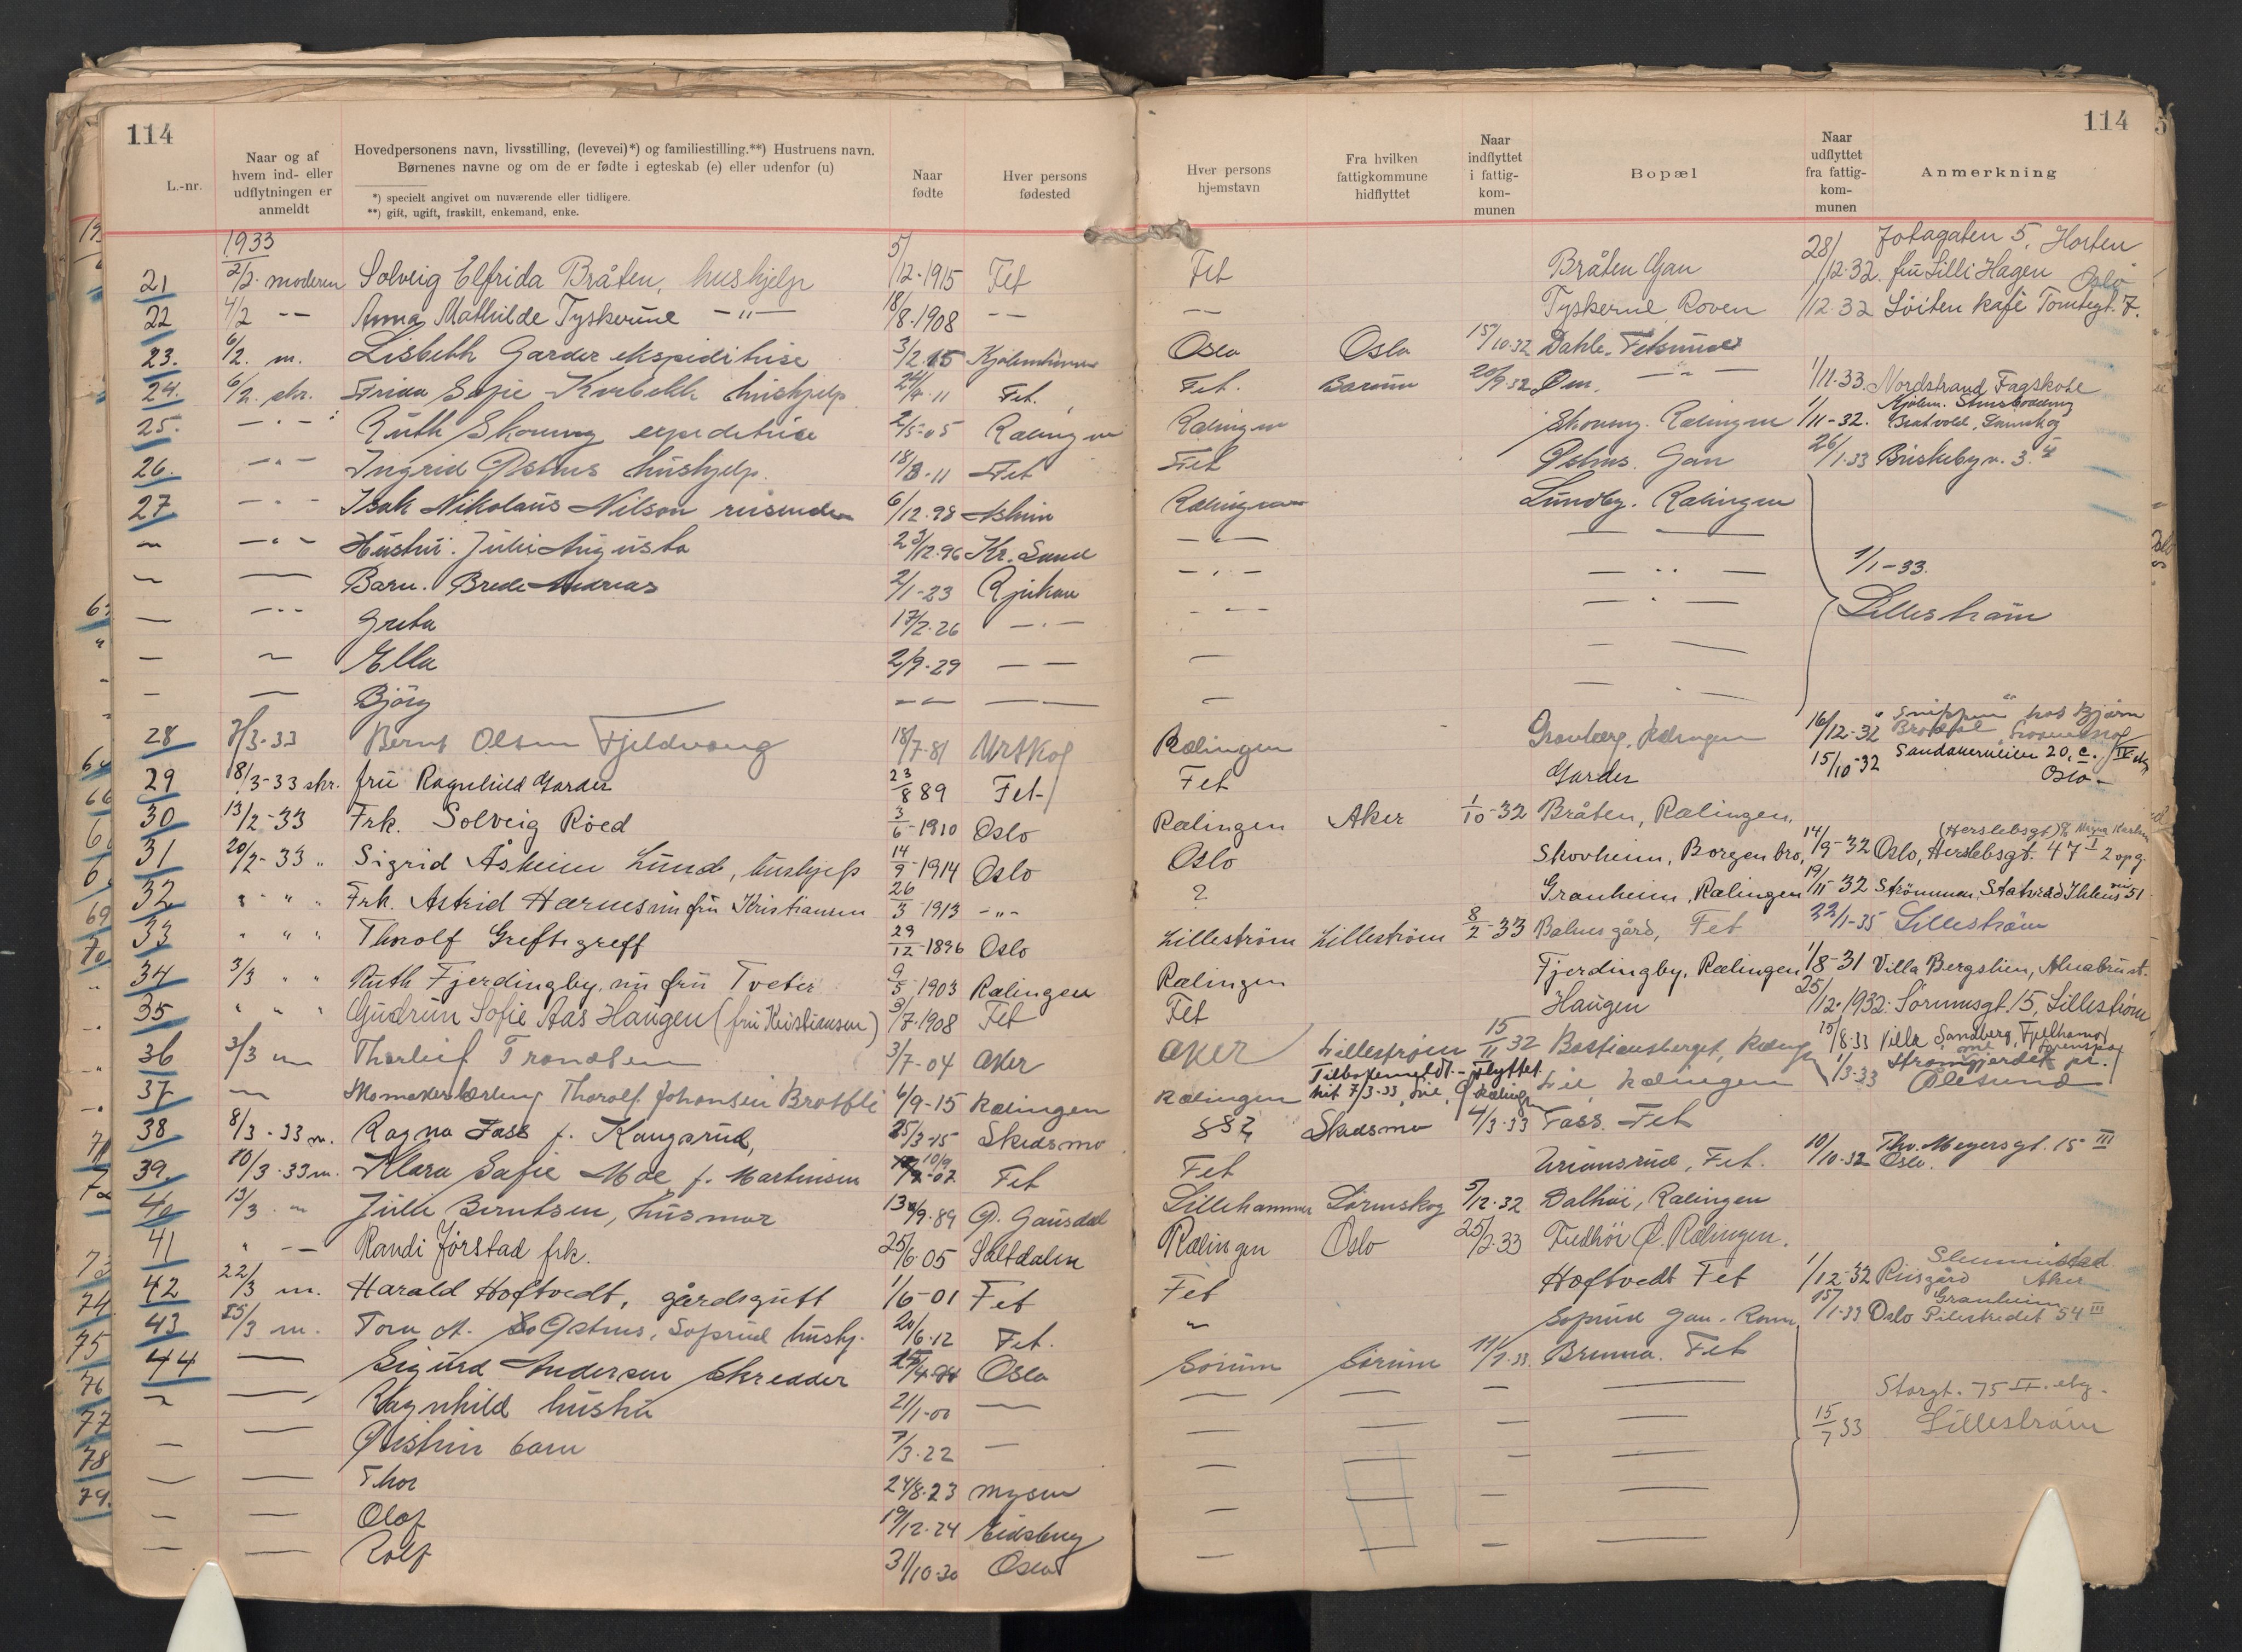 114
114
L.-nr.
Naar og af hvem ind- eller udflytningen er anmeldt
Hovedpersonens navn, livsstilling, (levevei)*) og familiestilling.**) Hustruens navn.
Børnenes navne og om de er fødte i egteskab (e) eller udenfor (u)
*) specielt angivet om nuværende eller tidligere.
**) gift, ugift, fraskilt, enkemand, enke.
Naar fødte
Hver persons fødested
Hver persons hjemstavn
Fra hvilken fattigkommune hidflyttet
Naar indflyttet i fattig-kom-munen
Bopæl
Naar udflyttet fra fattig-kom-munen
Anmerkning
1933
21 2/2. moderen Solveig Elfrida Bråten, hushjelp 5/12-1915 Fet Fet Bråten Gan 28/12-32. Jotagaten 5, Horten fru Lilli Hagen
22 4/2 -- Anna Mathilde Tyskerud -"- 18/8-1908 -- -- Tyskerud Roven 1/12-32 Löiten kafé Tomtegt. 7. Oslo
23. 6/2. m. Lisbeth Garder ekspeditrise 3/2.15 Oslo Oslo 15/10-32 Dahle. Fetsund
24. 6/2. skr. Frida Sofie hushjelp 24/4.11 Fet. Fet. Bærum 20/9-32 Øm. -"- 1/11-33. Nordstrand Fagskole
25. -"- Ruth Skovung expeditrise 2/5-05 Rælingen Rælingen Skovung. Rælingen 1/11-32.
26. -"- Ingrid Østens hushjelp. 18/8-11 Fet Fet Østens. Gan 26/1-33 Briskebyv. 3.
27 -"- Isak Nikolaus Nilson reisende 6/12-98 Askim Rælingen Lundby. Rælingen
-"- Hustru. Julie Augusta 23/12-96 Kr. Sund -"-
Barn. Brede Andreas 2/1-23 Rjukan -"- 1/1-33.
Greta 17/2-26 -"- Lilleström
Ella 2/9-29 --
Björg -- --
28 7/3-33 Bernt Olsen Fjeldvang 18/7-81 Urskog Rælingen Granberg, Rælingen 16/12-32 "Snippen" hos Bjarn
29 8/3-33 skr. fru Ragnhild Garder 23/8 89 Fet Fet Garder 15/10-32 Sandakerveien 20, c. Oslo -
30 13/2-33 Frk. Solveig Röed 3/6-1910 Oslo Rælingen Aker 1/10-32 Bråten, Rælingen.
31 20/2-33 " Sigrid Åsheim Lund, hushjelp 14/9-1914 Oslo Oslo Skovheim, Borgen bro, 14/9-32 Oslo, Herslebsgt. 47 I 2 opg. (Herslebsgt)
32 " " " Frk. Astrid Harnes nu fru Kristiansen 26/3-1913 -"- ? Granheim, Rælingen 19/11-32 Strömmen, Statsråd Ihlens vei 51
33 " " " Thorolf Greftsgreff 29/12-1896 Oslo Lilleström Lilleström 8/2-33 Balnesgård, Fet 22/1-35 Lilleström
34 3/3 " " Ruth Fjerdingby, nu fru Tveter 9/5 1903 Rælingen Rælingen Fjerdingby, Rælingen 1/8-31 Villa Bergslien, Alnabru st.
35 " " " Gudrun Sofie Aas Haugen (fru Kristiansen) 3/7-1908 Fet Fet Haugen 25/12-1932. Sörumsgt. 15, Lilleström
36 3/3 m Thorleif Trondsen 3/7-04 Aker Aker Lilleström 15/11 32 Bastiansberget, Ræling 15/8-33 Villa Sandberg, Fjellhamar
37 Skomakerlærling Thorolf Johansen Brotfli 6/9-15 Rælingen Rælingen Tilbakemeldt - Flyttet hit 7/3-33, Lie, Rælingen Lie Rælingen 1/3-33 pr. Ålesund
38 8/3-33 m. Ragna Fass f. Kaugsrud, 25/3-15 Skedsmo § 32 Skedsmo 4/3-33 Fass. Fet
39. 10/3-33 m. Klara Sofie Moe f. Martinsen 10/9-02 Fet Fet Urionsrud, Fet. 10/10-32 Thv. Meyersgt. 15 III Oslo.
40 13/3 " Julie Berntsen, husmor 13/9-89 Ø. Gausdal Lillehammer Lörenskog 5/12-32 Dalhöi, Rælingen
41 " -- Randi Jörstad frk. 25/6-05 Saltdalen Rælingen Oslo 25/2-33 Fredhöi Ø. Rælingen.
42 22/3 m. Harald Hoftvedt, gårdsgutt 1/6-01 Fet Fet Hoftvedt Fet 1/12-32 Riisgård Slemmestad Aker
43 25/3 m. Tora A. Östens, Soprud hushj. 20/6-12 Fet. " Soprud Gan. Roven 15/1-33 Oslo Granheim Pilestredet 54 III
44 Sigurd Andersen Skredder Oslo Sörum Sörum 11/1-33. Brenna. Fet
Ragnhild hustru 21/1-00 Storgt. 75 II. etg.
Øistein barn 7/3-22 15/7 33 Lilleström
Thor 24/8-23 Mysen
Olaf 19/12-24 Eidsberg
Rolf 31/10-30 Oslo